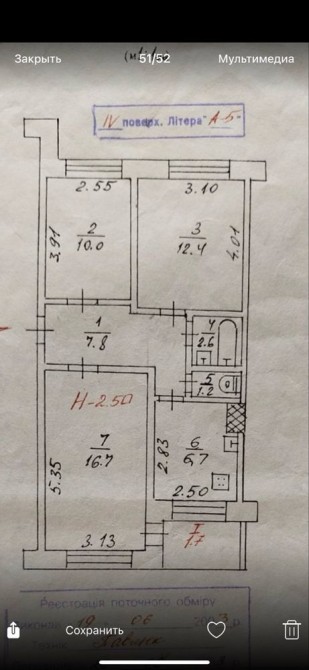 Закрыть 51/52 Мультимедиа
IV поверх. Літера "А-5"
2.55 3.10
3.91 2 10.0 3 12.4 4.01
1 7.8 4 2.6
5 1.2
Н-2.50
7 16.7 2.83 6 6,7
5.35
2.50
3.13 I 1.7
Реєстрація поточного обміру
19 06
Сохранить